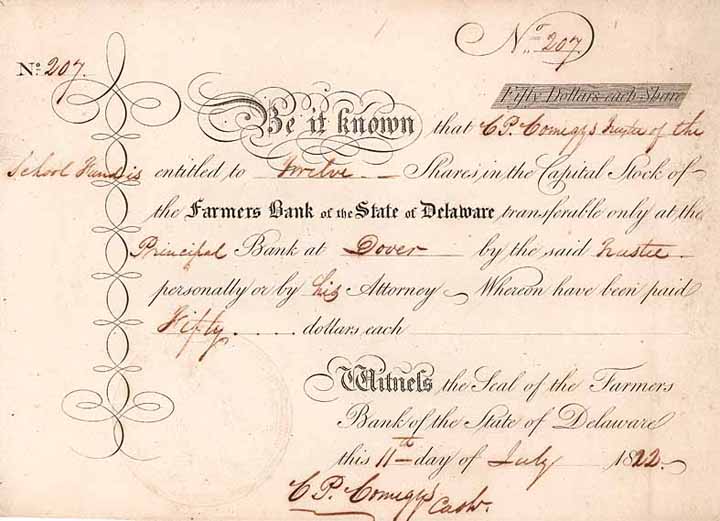 No. 207.
No. 207.
Fifty Dollars each Share
Be it known that C.P. Comegys Trustee of the
School Fund is entitled to Twelve Shares in the Capital Stock of
the Farmers Bank of the State of Delaware transferable only at the
Principal Bank at Dover by the said Trustee
personally or by his Attorney Whereon have been paid
Fifty .... dollars each
Witness the Seal of the Farmers
Bank of the State of Delaware
this 11th day of July 1822.
C.P. Comegys Cashr.